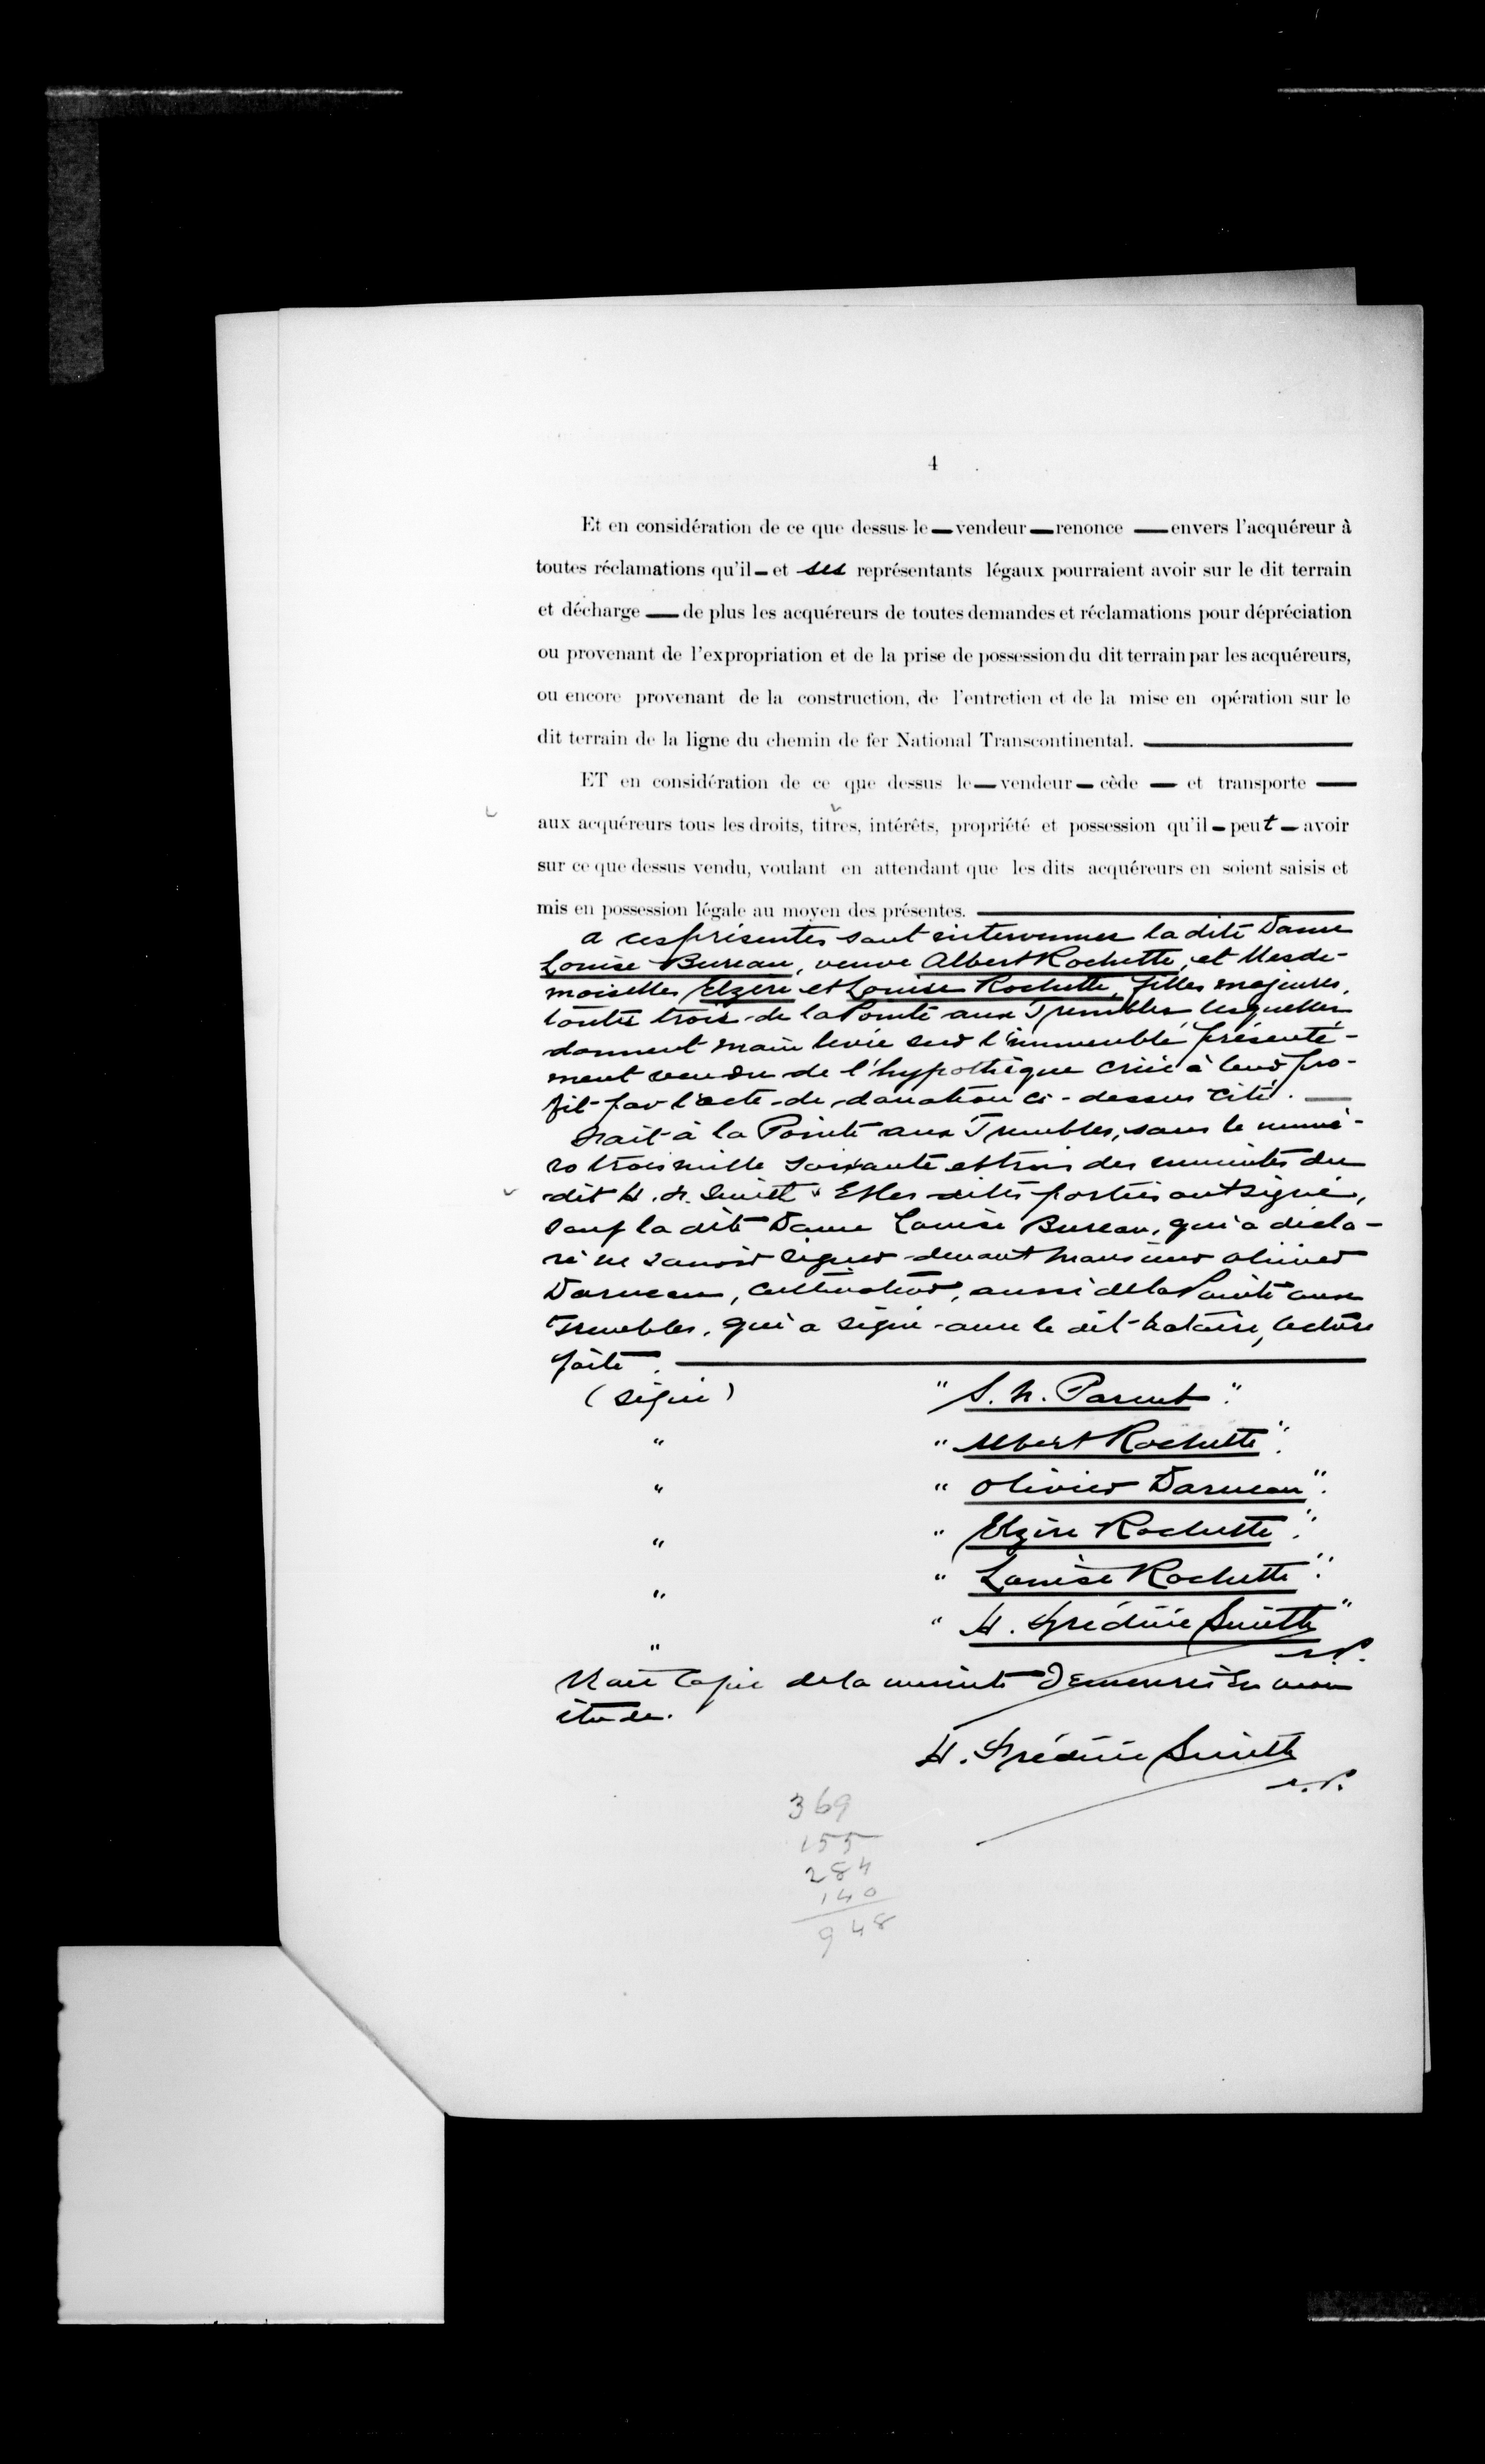 4
Et en considération de ce que dessus le — vendeur — renonce — envers l'acquéreur à
toutes réclamations qu'il — et ses représentants légaux pourraient avoir sur le dit terrain
et décharge — de plus les acquéreurs de toutes demandes et réclamations pour dépréciation
ou provenant de l'expropriation et de la prise de possession du dit terrain par les acquéreurs,
ou encore provenant de la construction, de l'entretien et de la mise en opération sur le
dit terrain de la ligne du chemin de fer National Transcontinental. —
ET en considération de ce que dessus le — vendeur — cède — et transporte —
aux acquéreurs tous les droits, titres, intérêts, propriété et possession qu'il — peut — avoir
sur ce que dessus vendu, voulant en attendant que les dits acquéreurs en soient saisis et
mis en possession légale au moyen des présentes. —
a ces présentes sont intervenues la dite Dame
Louise Bureau, veuve Albert Rochette, et Mesde-
moiselles Elzère et Louise Rochette, filles majeures,
toutes trois de la Pointe aux Trembles, lesquelles
donnent main levée sur l'immeuble présente-
ment vendu de l'hypothèque créée à leur pro-
fit par l'acte de donation ci-dessus cité. —
Fait à la Pointe aux Trembles, sous le numé-
ro trois mille soixante et trois des minutes du
dit H. F. Smith. Et les dites parties ont signé,
sauf la dite Dame Louise Bureau, qui a décla-
ré ne savoir signer devant Monsieur Olivier
Darveau, cultivateur, aussi de la Pointe aux
Trembles, qui a signé avec le dit Notaire, lecture
faite. —
(signé) "S. N. Parent".
" "Albert Rochette".
" "Olivier Darveau".
" "Elzère Rochette".
" "Louise Rochette".
" "H. Frédéric Smith"
n.P.
Vraie Copie de la minute demeurée en mon
étude.
H. Frédéric Smith
n.P.
369
155
284
140
948